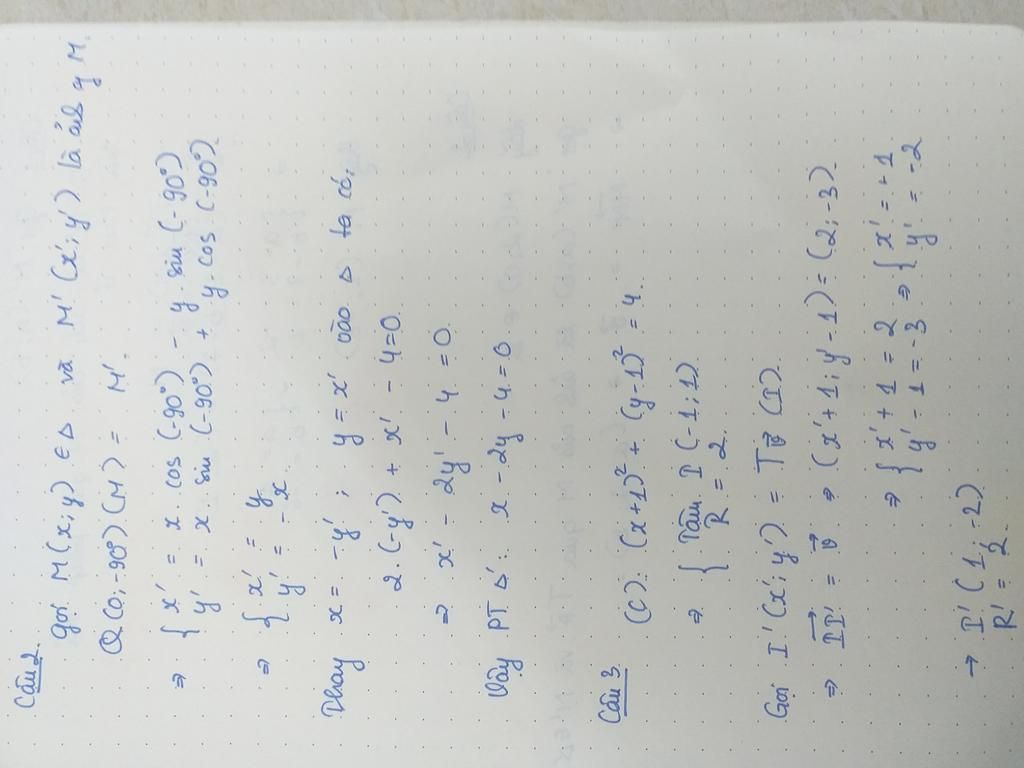 Câu 2.
Gọi M(x;y) ∈ Δ và M'(x';y') là ảnh của M.
Q(O;-90°)(M) = M'.
⇒ { x' = x.cos(-90°) - y.sin(-90°)
y' = x.sin(-90°) + y.cos(-90°).
⇒ { x' = y
y' = -x.
Thay x = -y' ; y = x' vào Δ ta có:
2.(-y') + x' - 4 = 0.
⇒ x' - 2y' - 4 = 0.
Vậy PT Δ': x - 2y - 4 = 0
Câu 3 (C): (x+1)² + (y-1)² = 4.
⇒ { Tâm I(-1;1)
R = 2.
Gọi I'(x';y') = Tv⃗ (I).
⇒ II'⃗ = v⃗ ⇒ (x'+1; y'-1) = (2;-3).
⇒ { x'+1 = 2 ⇒ { x' = +1
y'-1 = -3 y' = -2
→ I'(1;-2)
R' = 2.